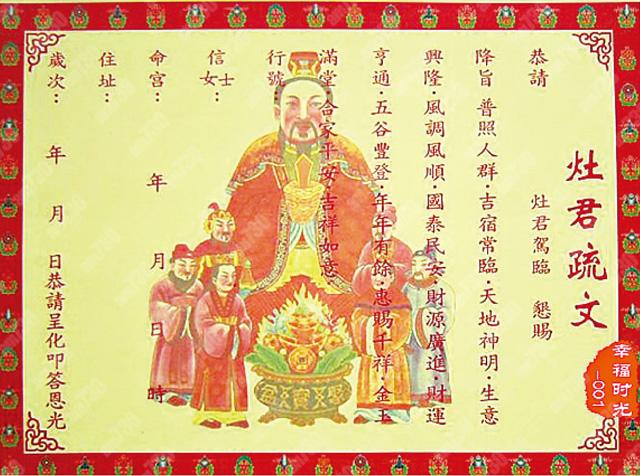 灶君疏文
恭請 灶君駕臨 懇賜
降旨·普照人群·吉宿常臨·天地神明·生意
興隆·風調風順·國泰民安·財源廣進·財運
亨通·五谷豐登·年年有餘·惠賜千祥·金玉
滿堂·合家平安·吉祥如意
行號：
信士女：
命宮： 年 月 日 時
住址：
歲次： 年 月 日恭請呈化叩答恩光
幸福时光
—001